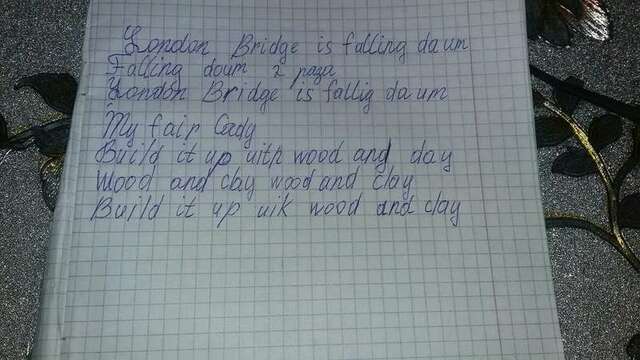 London Bridge is falling daum
Falling doum 2 раза
London Bridge is fallig daum
My fair Lady
Build it up uitp wood and day
Wood and clay wood and clay
Build it up uik wood and clay